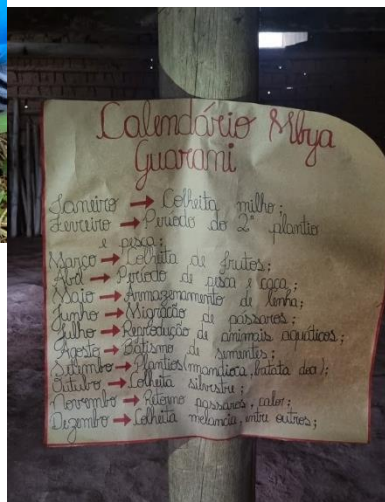 Calendário Mbya
Guarami
Janeiro → Colheita milho;
Fevreiro → Período do 2° plantio
e pesca;
Março → Colheita de frutos;
Abril → Período de pisca e caça;
Maio → Armazenamento de lenha;
Junho → Migração de pássaros;
Julho → Reprodução de animais aquáticos;
Agosto → Batismo de sementes;
Setembro → Plantios (mandioca, batata doce);
Outubro → Colheita silvestre;
Novembro → Retorno pássaros, calor;
Dezembro → Colheita melancia, entre outros;